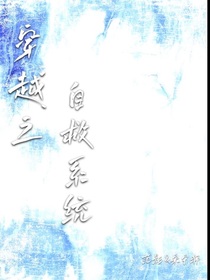 穿越之
自救系统